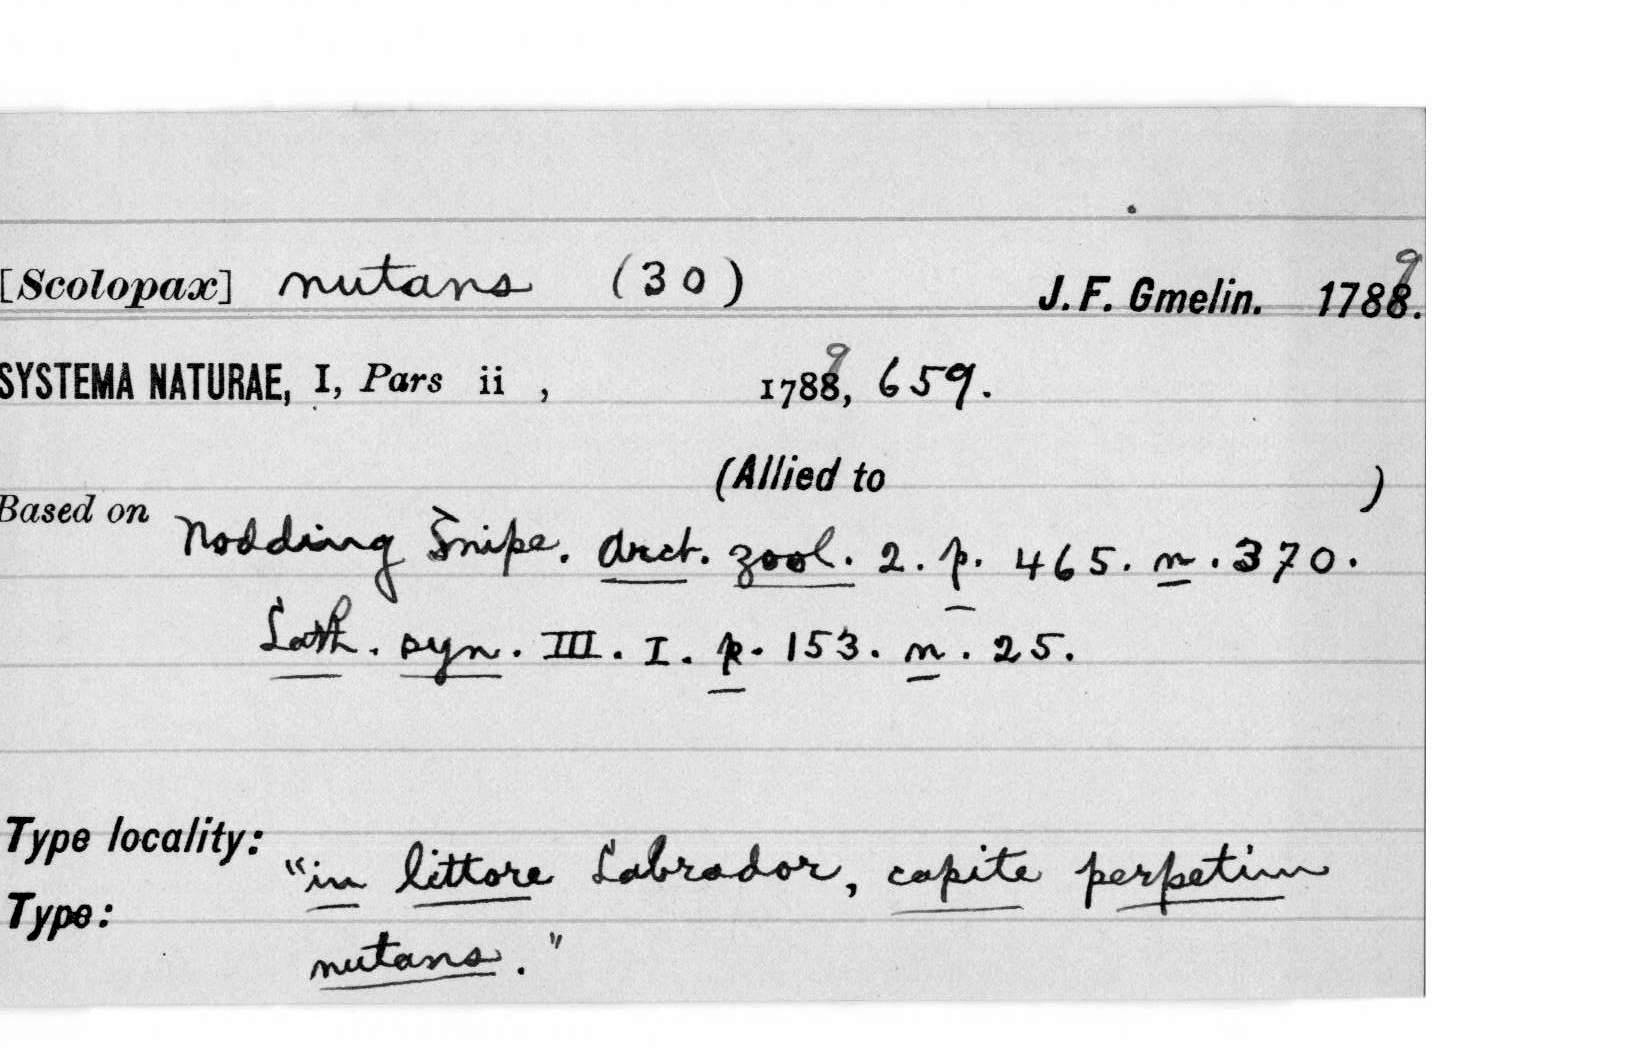 [Scolopax] nutans (30) J. F. Gmelin. 1789.
SYSTEMA NATURAE, I, Pars ii , 1789, 659.
(Allied to )
Based on Nodding Snipe. Arct. zool. 2. p. 465. n. 370.
Lath. syn. III. I. p. 153. n. 25.
Type locality: "in littore Labrador, capite perpetim
Type: nutans."